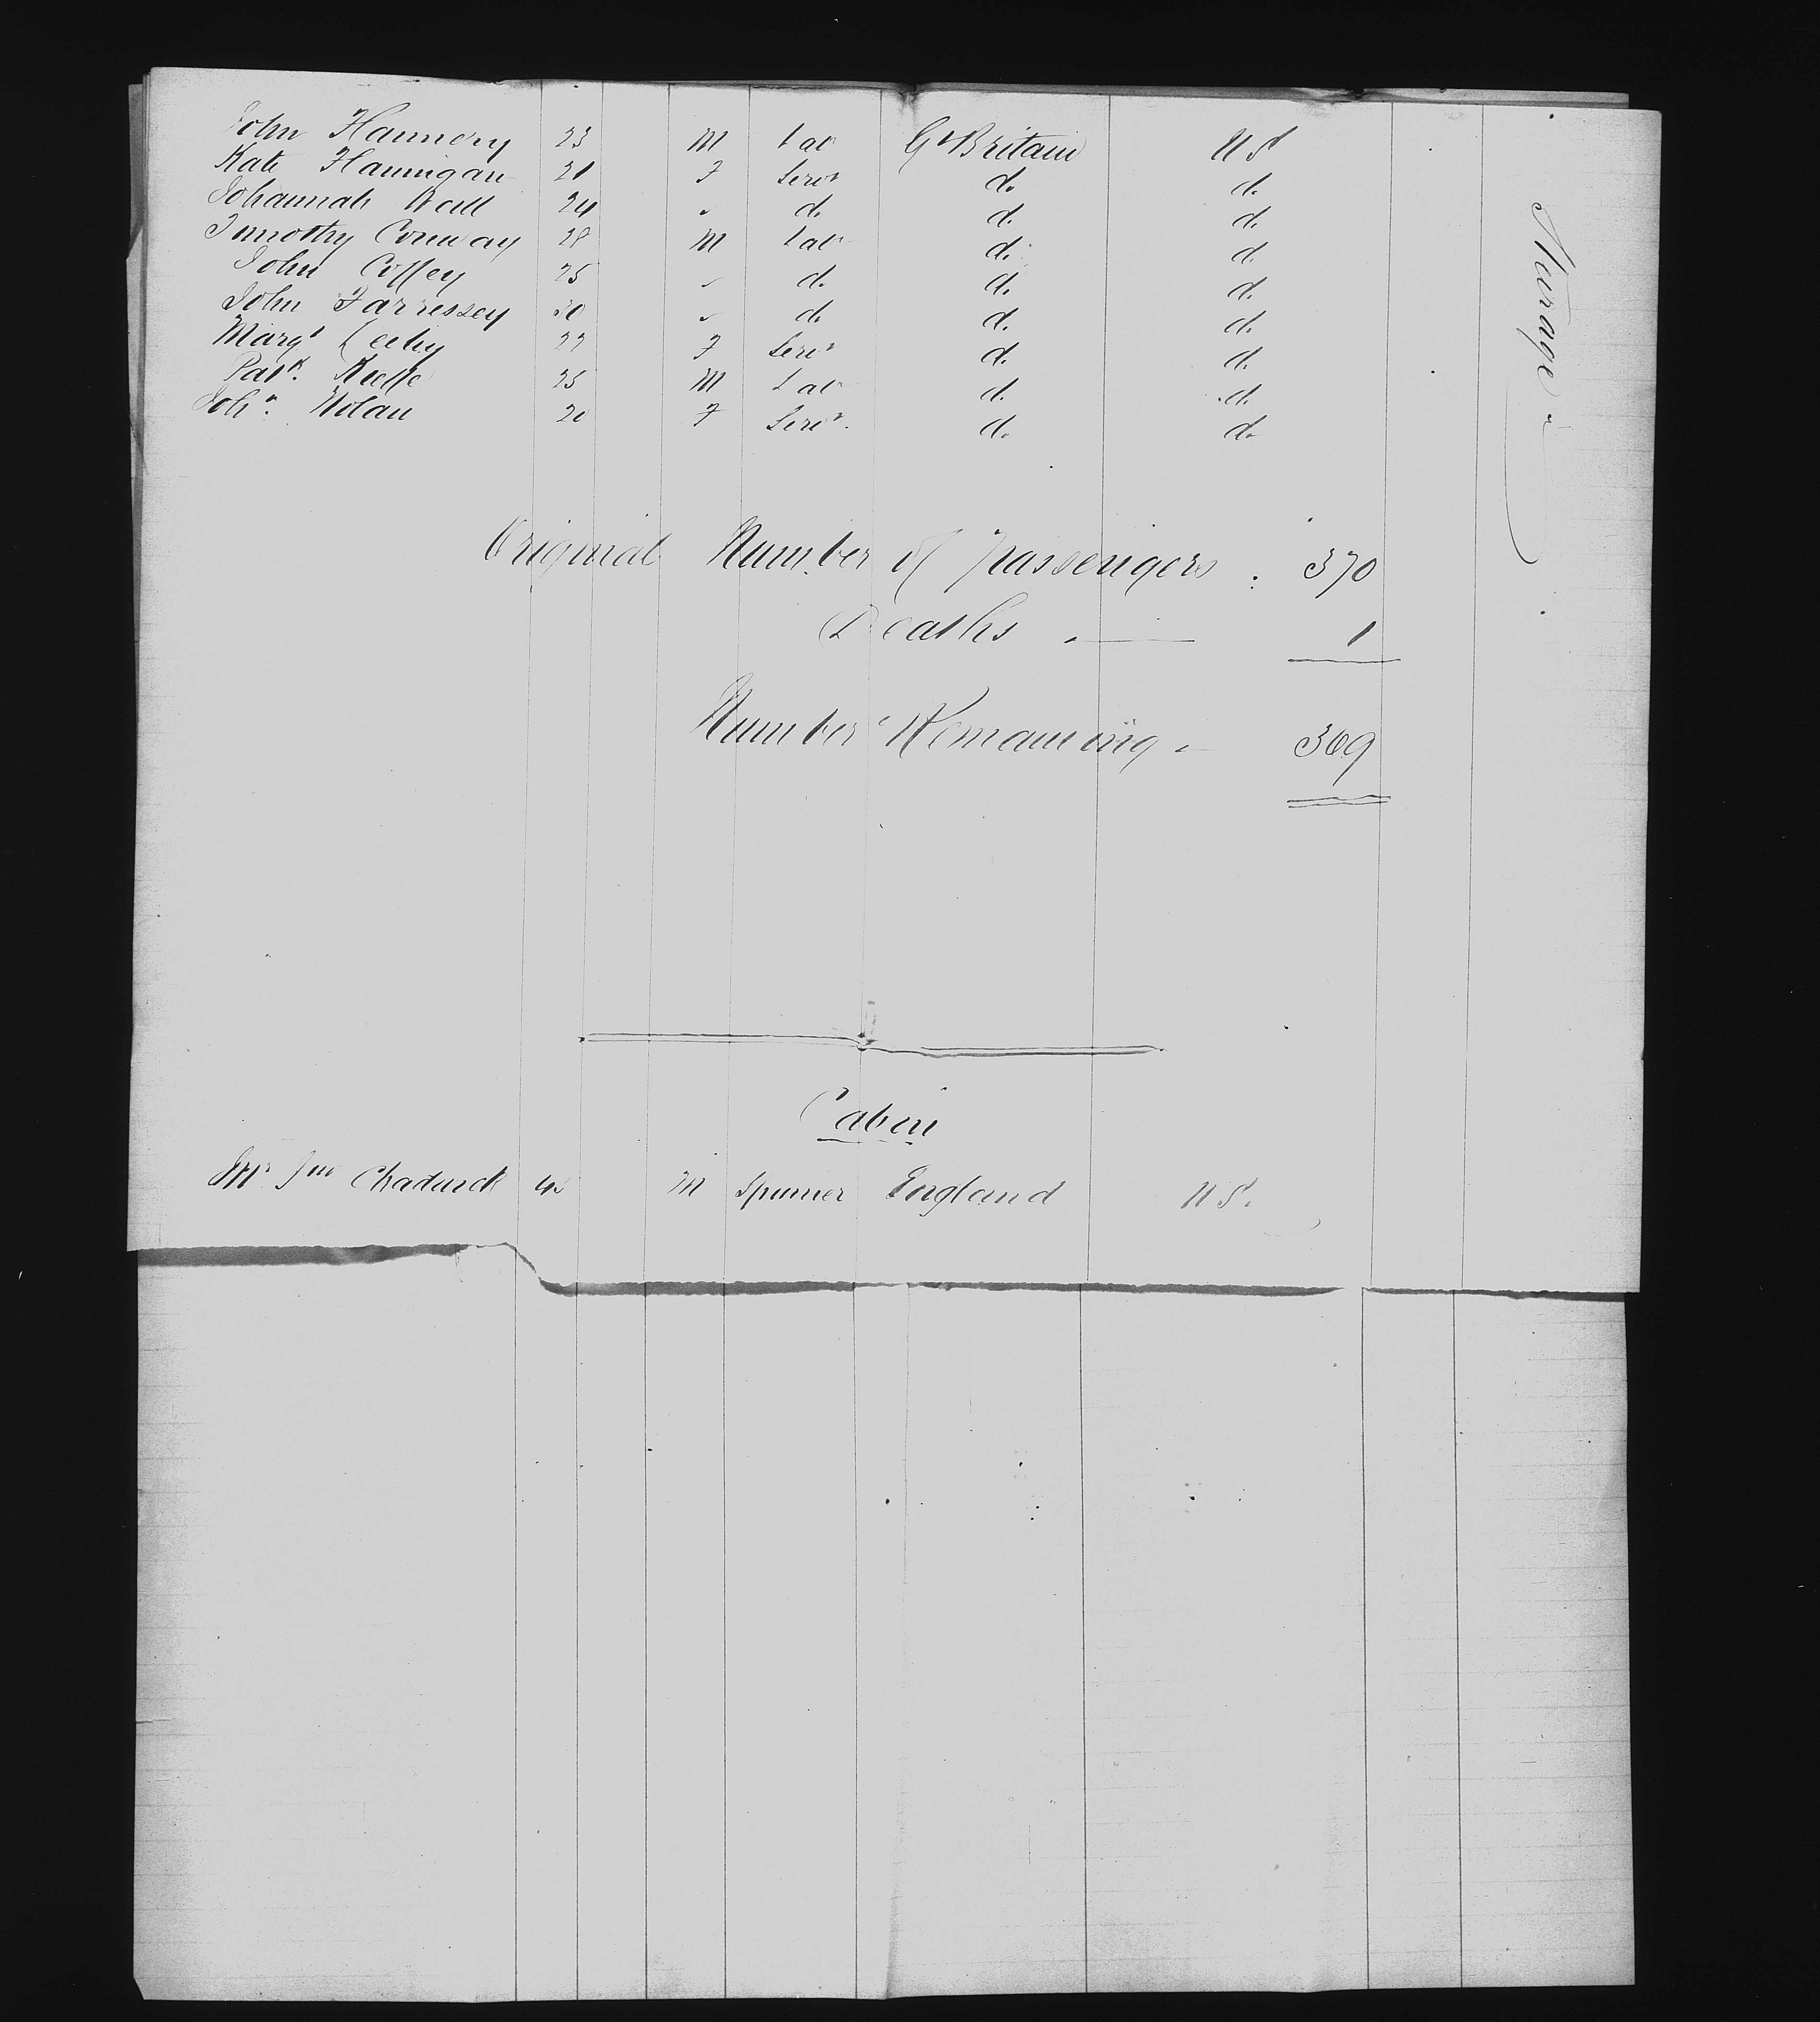 John Flannery 23 M Lab Gt Britain U S
Kate Flannigan 21 F Servt do. do.
Johannah 24 " do. do. do.
Timothy Conway 28 M Lab do. do.
John Coffey 25 " do. do. do.
John Farressey 30 " do. do. do.
Margt Leehy 22 F Servt do. do.
Patk. Keeffe 25 M Lab do. do.
Joha. Nolan 20 F Servt. do. do.
Steerage
Original Number of Passengers : 370
Deaths . — 1
Number Remaining . — 369
Cabin
Mr Jno Chadwick M Spinner England U S.